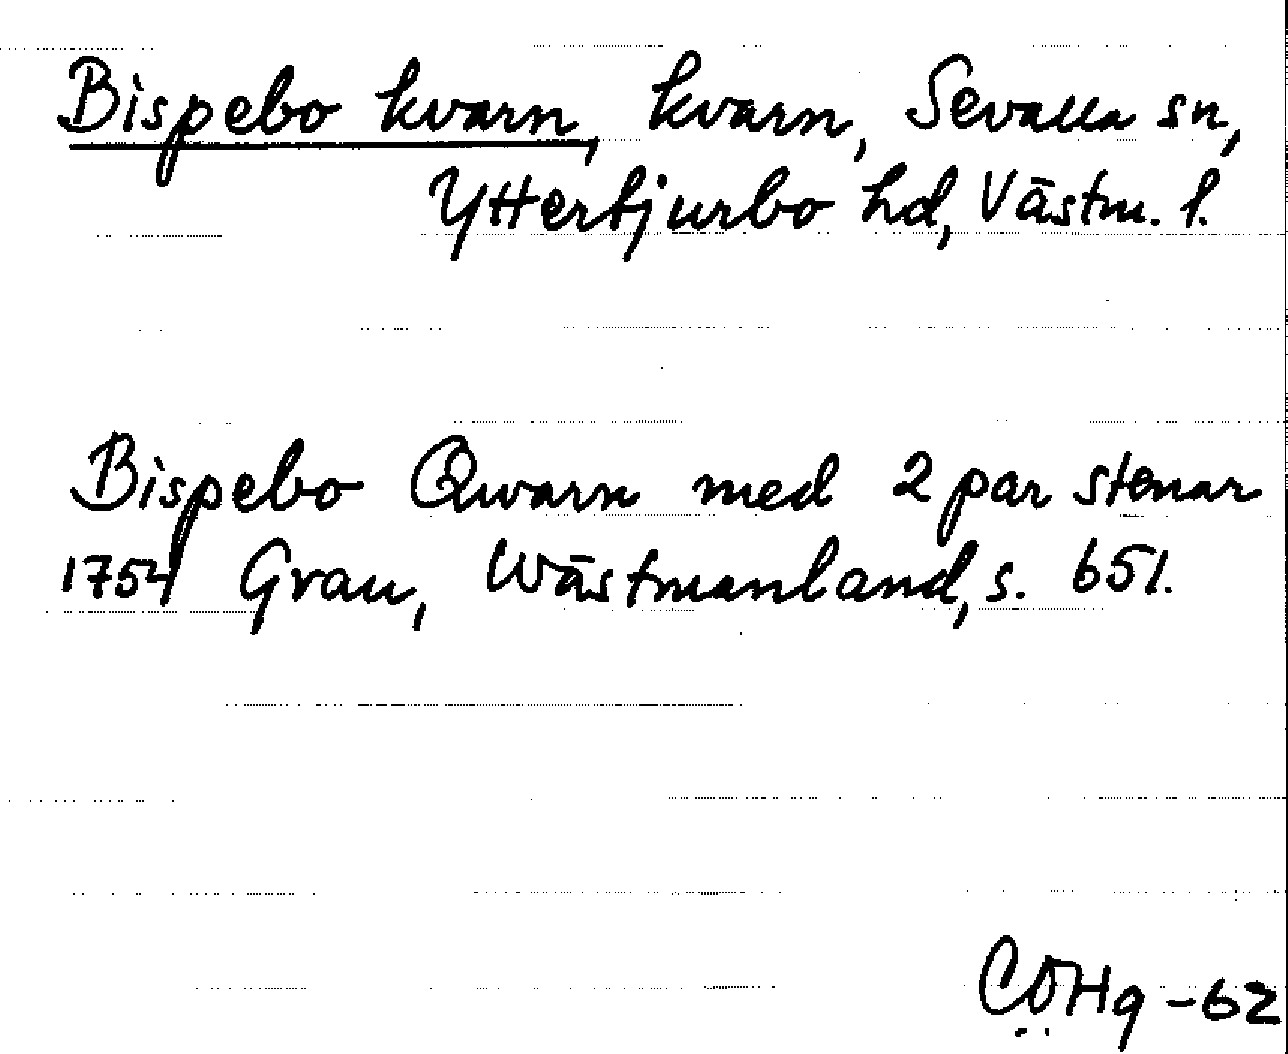 Bispebo kvarn, kvarn, Sevalla sn,
Yttertjurbo hd, Västm. l.
Bispebo Qwarn med 2 par stenar
1754 Grau, Wästmanland, s. 651.
CÖHg -62